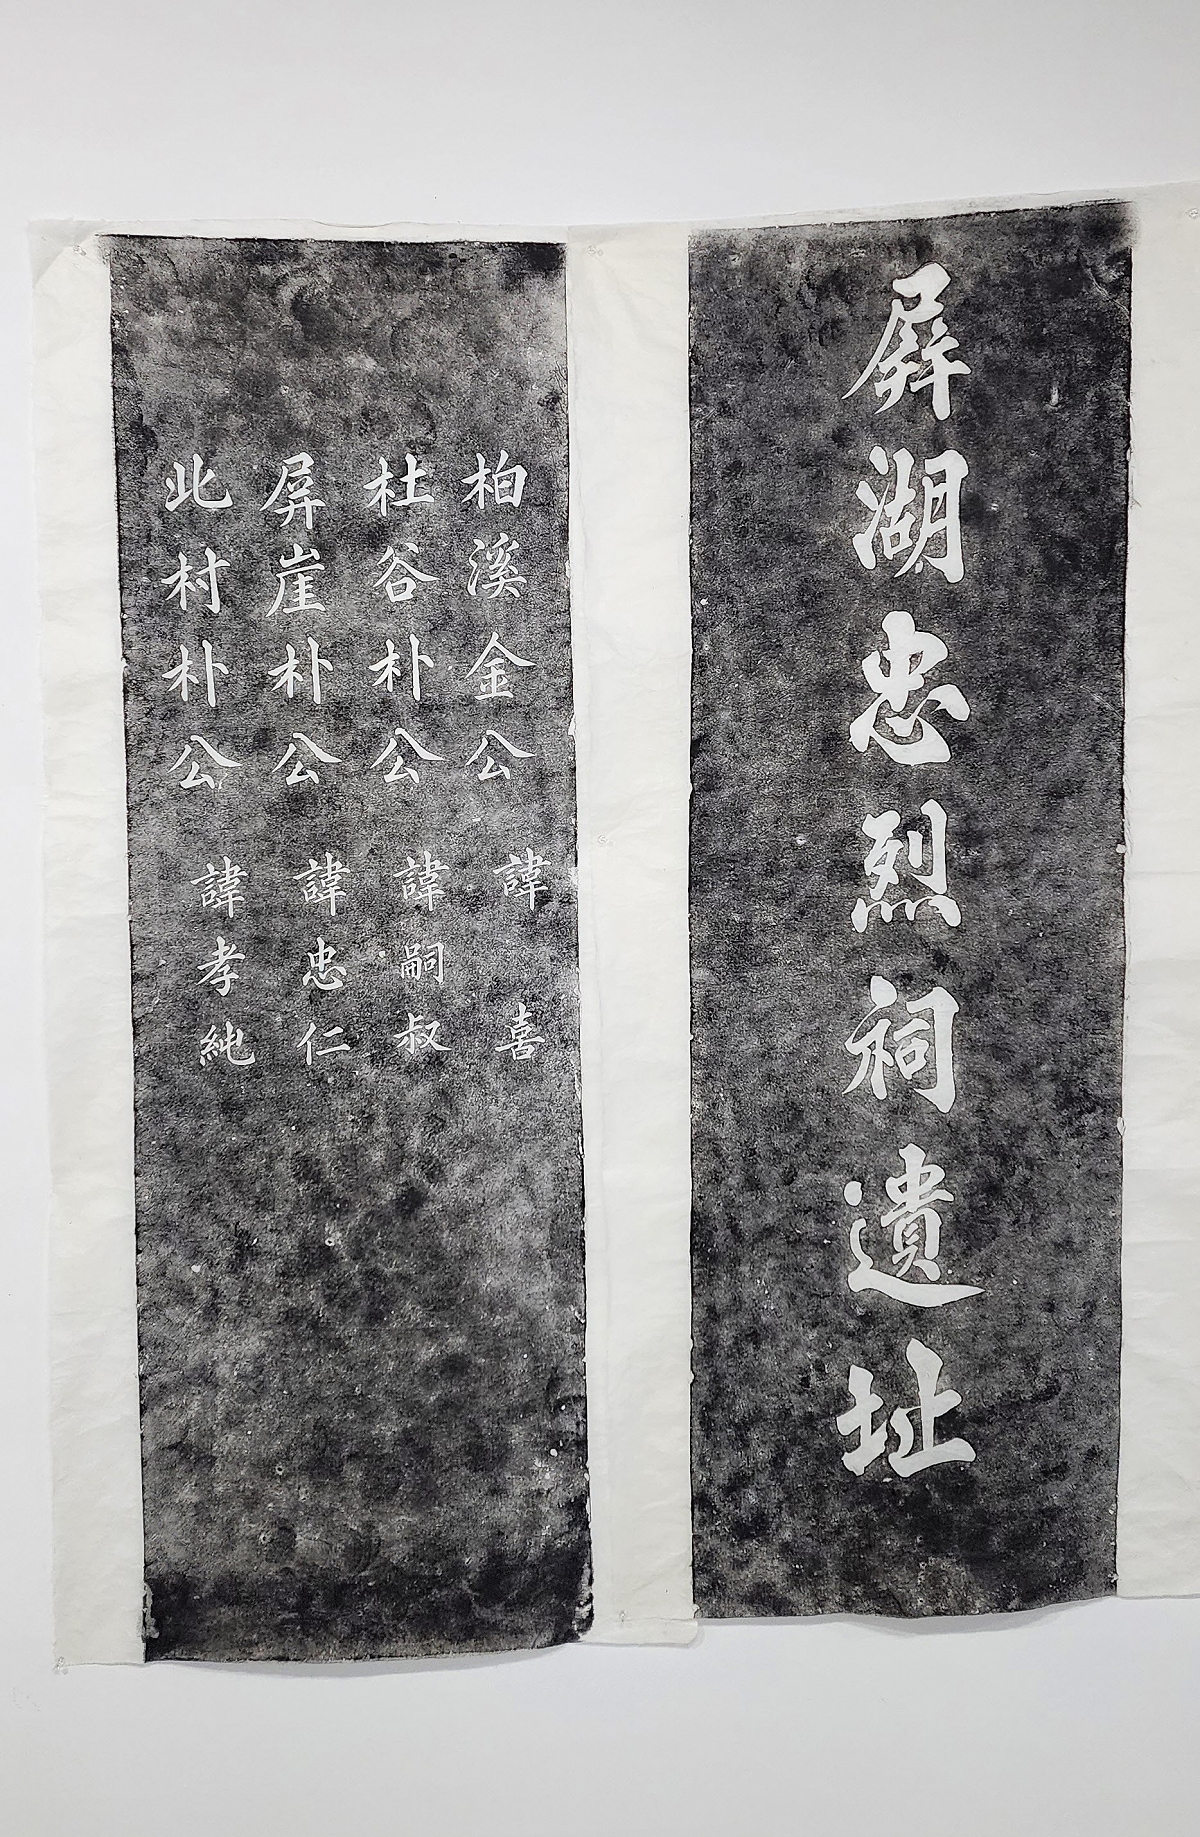 屛湖忠烈祠遺址
柏溪金公 諱 喜
杜谷朴公 諱嗣叔
屏崖朴公 諱忠仁
此村朴公 諱孝純